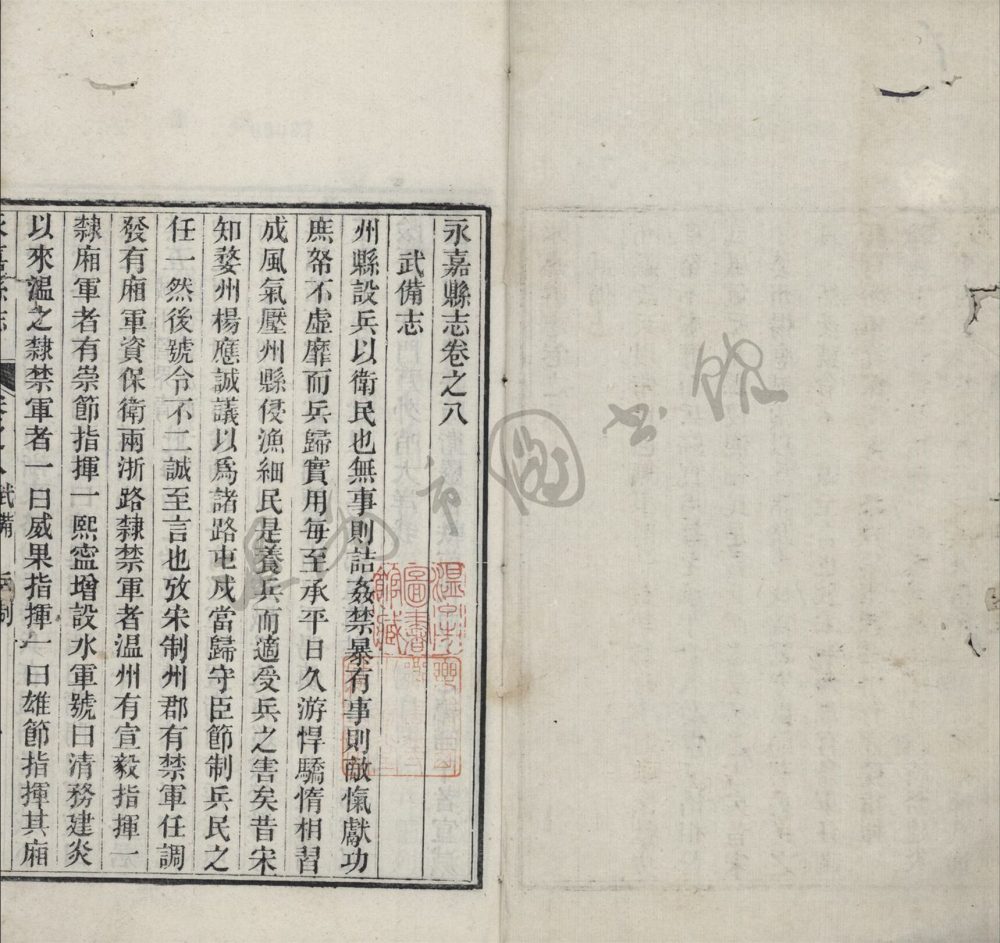 永嘉縣志卷之八
武備志
州縣設兵以衛民也無事則詰姦禁暴有事則敵愾獻功
庶帑不虛靡而兵歸實用每至承平日久游悍驕惰相習
成風氣壓州縣侵漁細民是養兵而適受兵之害矣昔宋
知婺州楊應誠議以爲諸路屯戍當歸守臣節制兵民之
任一然後號令不二誠至言也攷宋制州郡有禁軍任調
發有廂軍資保衛兩浙路隸禁軍者温州有宣毅指揮一
隸廂軍者有崇節指揮一熙寧增設水軍號曰清務建炎
以來溫之隸禁軍者一曰威果指揮一曰雄節指揮其廂
永嘉縣志
卷之八
武備
兵制
圖書館藏
温州市圖書館